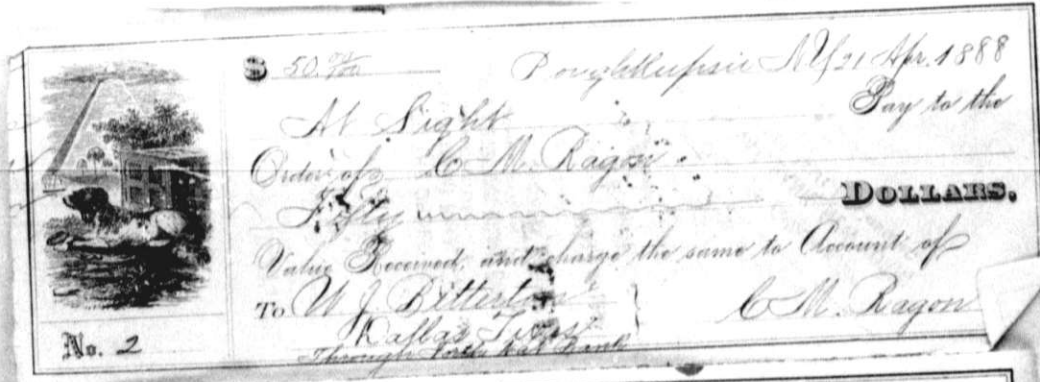 $ 50.00/100 Poughkeepsie NY 21 Apr. 1888
At Sight Pay to the
Order of C. M. Ragon
Fifty DOLLARS.
Value Received, and charge the same to Account of
To W J C. M. Ragon
Dallas Texas
No. 2 Through Bank